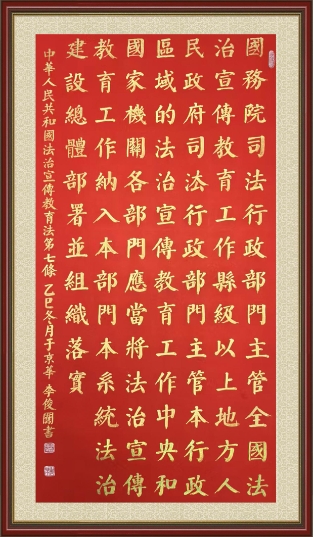 國務院司法行政部門主管全國法
治宣傳教育工作縣級以上地方人
民政府司法行政部門主管本行政
區域的法治宣傳教育工作中央和
國家機關各部門應當將法治宣傳
教育工作納入本部門本系統法治
建設總體部署並組織落實
中華人民共和國法治宣傳教育法第七條 乙巳冬月于京華 李俊國書